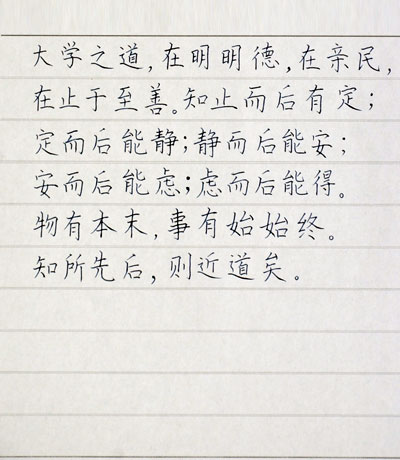 大学之道,在明明德,在亲民,
在止于至善。知止而后有定;
定而后能静;静而后能安;
安而后能虑;虑而后能得。
物有本末,事有始始终。
知所先后,则近道矣。